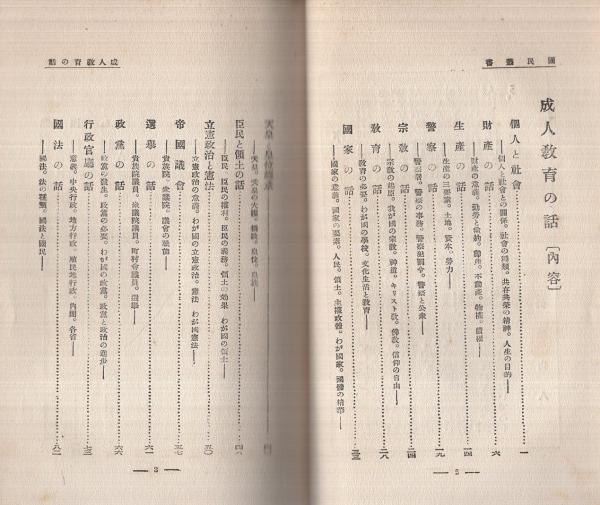 國民叢書
成人敎育の話〔內容〕
個人と社會 一
――個人と社會との關係。社會の種類。共存共榮の精神。人生の目的――
財產の話 六
――財產の意義。勤勞と儉約。動產。不動產。物權。債權――
生產の話 一四
――生產の三要素。土地。資本。勞力――
警察の話 一九
――警察の事務。警察犯罰令。警察と公衆――
宗敎の話 二四
――宗敎の起原。我が國の宗敎。神道。キリスト敎。佛敎。信仰の自由――
敎育の話 二八
――敎育の必要。わが國の學校。文化生活と敎育――
國家の話
――國家の意義。國家の要素。人民。領土。主權政體。わが國家。國體の精華――
― 2 ―
成人敎育の話
天皇
臣民と領土の話
――臣民。臣民の權利。臣民の義務。領土の効果。わが國の領土――
立憲政治と憲法 五〇
立憲政治の意義。わが國の立憲政治。憲法。わが國憲法――
帝國議會 五七
貴族院。衆議院。議會の職能――
選擧の話 六一
――貴族院議員。衆議院議員。町村會議員。選擧――
政黨の話 六六
――政黨の發生。政黨の必要。わが國の政黨。政黨と政治の進步――
行政官廳の話 七三
――意義。中央行政。地方行政。殖民地行政。內閣。各省――
國法の話 八二
――國法。法の種類。國法と國民――
― 3 ―